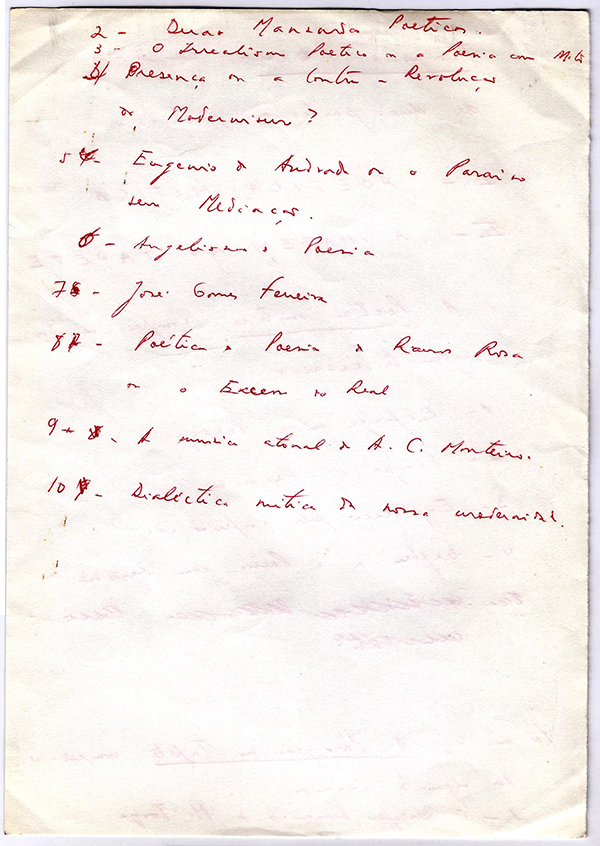 2 - Duas Mansardas Poéticas.
3 - O Irrealismo Poético ou a Poesia com Mito
4) Presença ou a Contra-Revolução
do Modernismo?
5 - Eugénio de Andrade ou o Paraíso
sem Mediação.
6 - Angelismo e Poesia
7 - José Gomes Ferreira
8 - Poética e Poesia de Ramos Rosa
ou o Excesso do Real
9 - A música atonal de A. C. Monteiro.
10 - Dialéctica mítica da nossa modernidade.